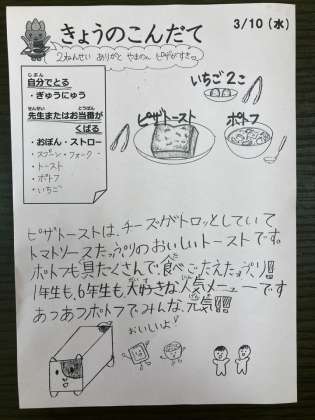 きょうのこんだて
3/10(水)
2ねんせい ありがとう やまのん ピザがすき。
自分でとる
・ぎゅうにゅう
先生またはお当番が
くばる
・おぼん・ストロー
・スプーン・フォーク
・トースト
・ポトフ
・いちご
いちご2こ
ピザトースト
ポトフ
ピザトーストは、チーズがトロッとしていて
トマトソースたっぷりのおいしいトーストです。
ポトフも具だくさんで、食べごたえたっぷり!!
1年生も、6年生も大好きな人気メニューです
あつあつポトフでみんな、元気!!!
おいしいよ!